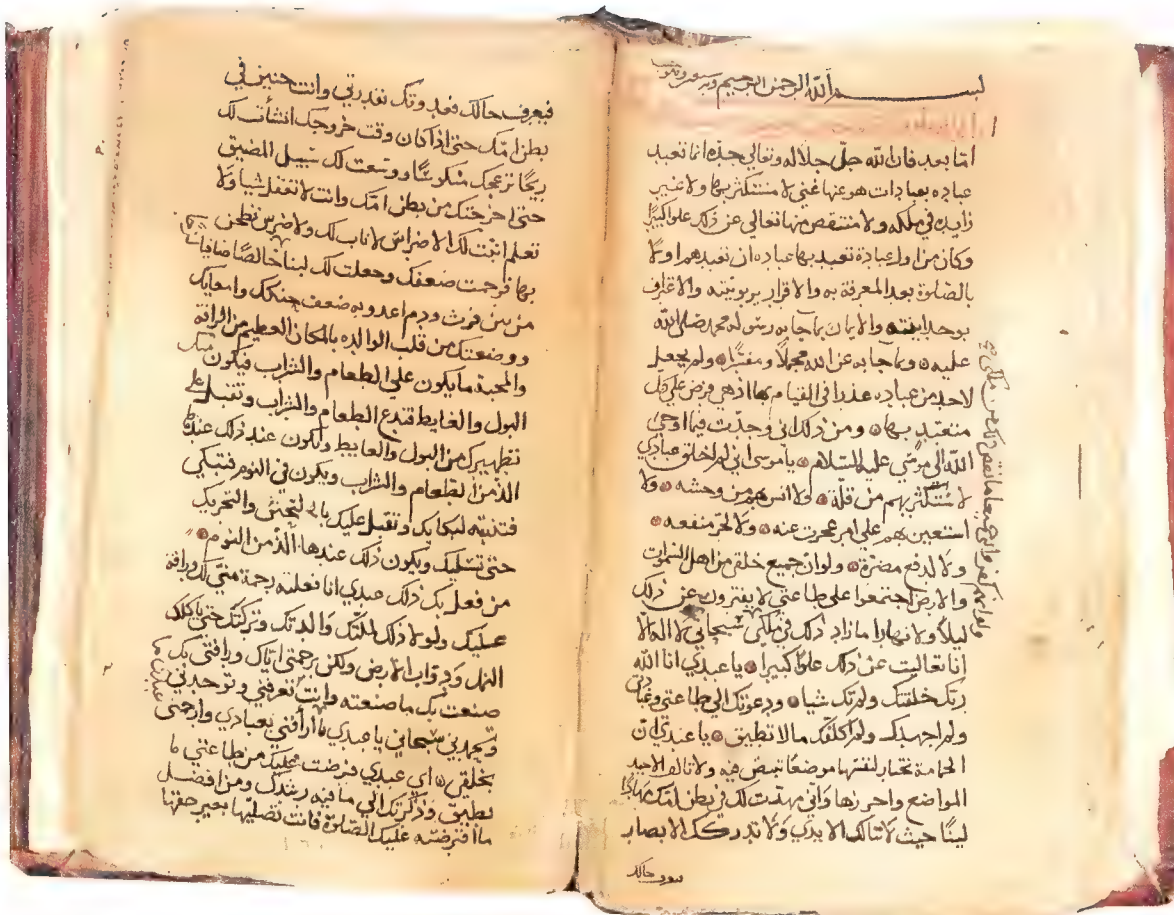 بسم الله الرحمن الرحيم وبه
اما بعد فان الله جل جلاله وتعالى جده انما تعبد
عباده بعبادات هو عنها غني لا مستكثر بها ولا غير
زايده في ملكه ولا منتقص منها تعالى عن ذلك علوا كبيرا
وكان من اول عبادة تعبد بها عباده ان تعبدهم اولا
بالصلوة بعد المعرفة به والاقرار بربوبيته والاعتراف
بوحدانيته والايمان بما جا به رسوله محمد صلى الله
عليه وبما جا به عن الله مجملا ومفسرا ولم يجعل
لاحد من عباده عذرا في القيام بها اذ هي فرض على كل
متعبد بها ومن ذلك اني وجدت فيما اوحى
الله الى موسى عليه السلام يا موسى اني لم اخلق عبادي
لاستكثر بهم من قلة ولا انس بهم من وحشه ولا
استعين بهم على امر عجزت عنه ولا لجر منفعه
ولا لدفع مضرة ولو ان جميع خلقي من اهل السموات
والارض اجتمعوا على طاعتي لا يفترون عن ذلك
ليلا ولا نهارا ما زاد ذلك في ملكي سبحاني لا اله الا
انا تعاليت عن ذلك علوا كبيرا يا عبدي انا الله
ربك خلقتك ولم تك شيا ودعوتك الى طاعتي
ولم اجهدك ولم اكلفك ما لا تطيق يا عبدي ان
الحمامة تختار لنفسها موضعا تبيض فيه ولا تالف الا
المواضع واحرزها واني مهدت لك في بطن امك مهادا
لينا حيث لا تنالك الايدي ولا تدركك الابصار
حالك
فيعرف حالك فغذوتك بقدرتي وانت جنين في
بطن امك حتى اذا كان وقت خروجك انشأت لك
ريحا تزعجك منكوسا ووسعت لك سبيل المضيق
حتى اخرجتك من بطن امك وانت لا تعقل شيا ولا
تعلم انبت لك الاضراس لا ناب لك ولا ضرس تطحن
بها فرحمت ضعفك وجعلت لك لبنا خالصا صافيا
من بين فرث ودم اغذو به ضعف حنكك وامعايك
ووضعتك من قلب الوالده بالمكان العظيم من الرافة
والمحبة ما يكون على الطعام والشراب فيكون منك
البول والغايط فتدع الطعام والشراب وتقبل على
تطهيرك من البول والغايط ويكون عند ذلك عندها
الذ من الطعام والشراب ويكون في النوم فتبكي
فتنتبه لبكايك وتقبل عليك والتحريك
حتى تسليك ويكون ذلك عندها الذ من النوم
من فعل بك ذلك عبدي انا فعلته رحمة مني لك ورافة
عليك ولولا ذلك لملتك والدتك وتركتك حتى ياكلك
النمل ودواب الارض ولكن رحمتي اياك ورافتي بك
صنعت بك ما صنعته وانت تعرفني وتوحدني
وتحمدني سبحاني يا عبدي ما ارأفني بعبادي وارحمني
بخلقي اي عبدي فرضت عليك من طاعتي ما
تطيق وذكرتك الى ما فيه رشدك ومن افضل
ما افترضته عليك الصلوة فانت تصليها بغير حقها